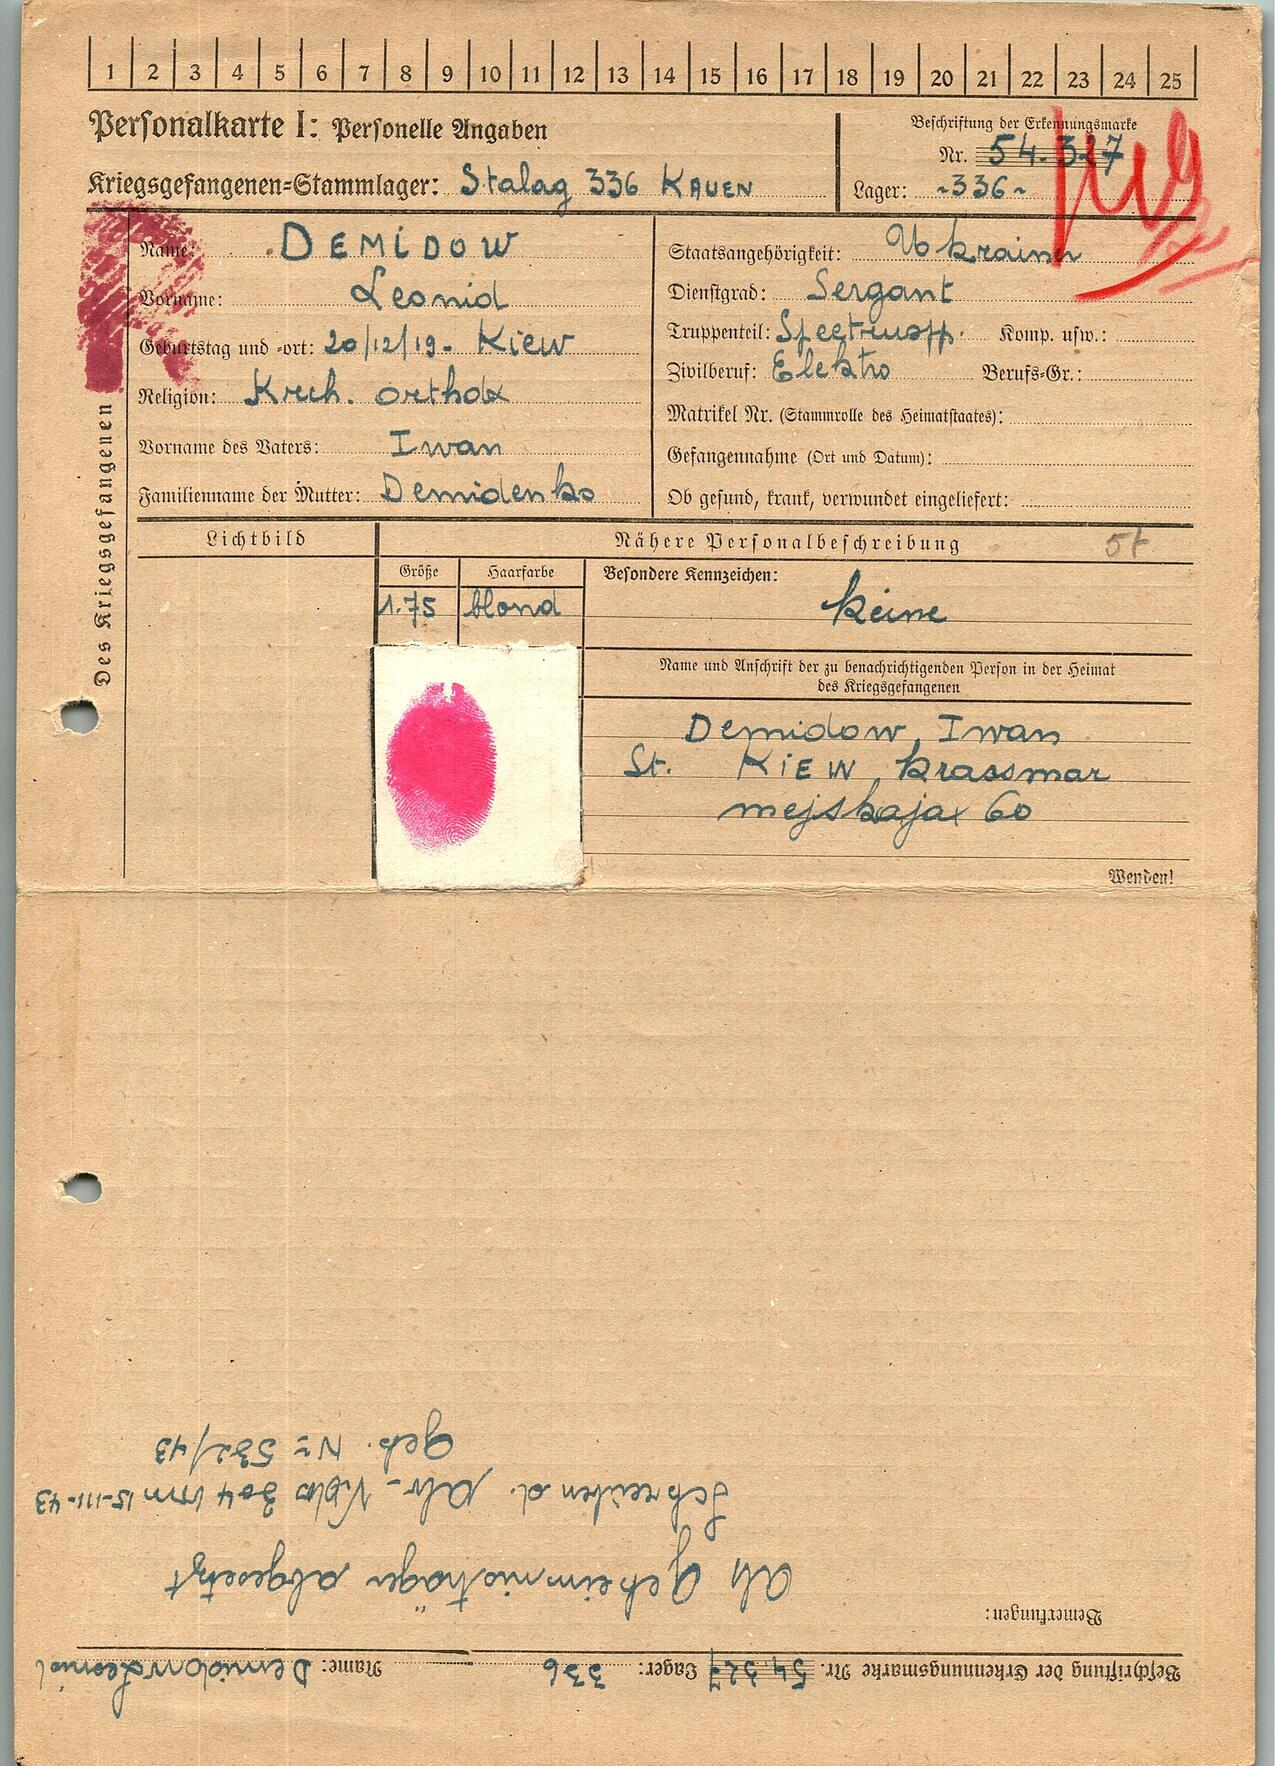 1 2 3 4 5 6 7 8 9 10 11 12 13 14 15 16 17 18 19 20 21 22 23 24 25
Personalkarte I: Personelle Angaben
Kriegsgefangenen=Stammlager: Stalag 336 KAUEN
Beschriftung der Erkennungsmarke
Nr. 54.327
Lager: ~336~
Des Kriegsgefangenen
Name: DEMIDOW
Vorname: Leonid
Geburtstag und -ort: 20/12/19- Kiew
Religion: Krch. orthox
Vorname des Vaters: Iwan
Familienname der Mutter: Demidenko
Staatsangehörigkeit: Ukrainer
Dienstgrad: Sergant
Truppenteil: Komp. usw.:
Zivilberuf: Elektro Berufs=Gr.:
Matrikel Nr. (Stammrolle des Heimatstaates):
Gefangennahme (Ort und Datum):
Ob gesund, krank, verwundet eingeliefert:
Lichtbild
Nähere Personalbeschreibung
Größe Haarfarbe
1.75 blond
Besondere Kennzeichen:
keine
Name und Anschrift der zu benachrichtigenden Person in der Heimat
des Kriegsgefangenen
Demidow, Iwan
St. KIEW, Krassmar
mejskaja 60
Wenden!
Beschriftung der Erkennungsmarke Nr. 54.327 Lager: 336 Name: Demidow Leonid
Bemerkungen:
Als Geheimnisträger abgesetzt
Schreiben d. 304 vom 15-III-43
Geh. N= 532/43